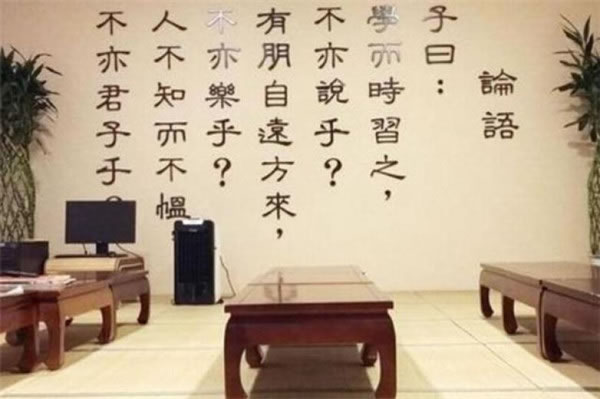 論語
子曰：
學而時習之，
不亦說乎？
有朋自遠方來，
不亦樂乎？
人不知而不慍
不亦君子乎